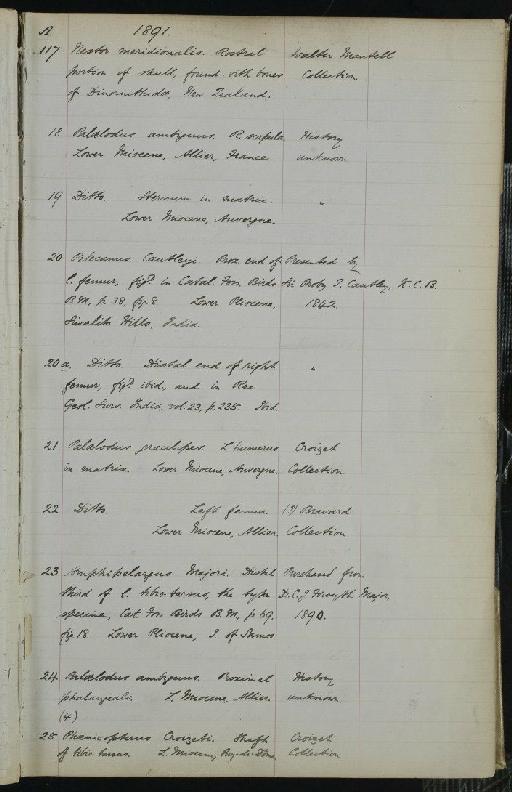 A 1891.
117 Nestor meridionalis. Rostral Walter Mantell
portion of skull, found with bones Collection
of Dinornithidæ, New Zealand.
18 Palælodus ambiguus. R. scapula History
Lower Miocene, Allier, France unknown
19 Ditto. Sternum in matrix. "
Lower Miocene, Auvergne.
20 Pelecanus Cautleyi. Prox. end of Presented by
l. femur, figd. in Catal. Fos. Birds Sir Proby T. Cautley, K.C.B.
B.M., p. 38, fig 8 Lower Pliocene, 1842.
Siwalik Hills, India.
20a. Ditto. Distal end of right "
femur, figd. ibid, and in Rec
Geol. Surv. India, vol. 23, p. 235. Ibid.
21 Palælodus L. humerus Croizet
in matrix. Lower Miocene, Auvergne. Collection
22 Ditto Left femur. Collection
Lower Miocene, Allier.
23 Amphipelargus Majori. Distal Purchased from
third of l. tibio-tarsus, the type Dr. C. J. Forsyth Major
specimen, Cat. Fos. Birds B.M., p. 69, 1890.
fig 18. Lower Pliocene, I. of Samos
24 Palælodus ambiguus. Proximal History
phalangeals. L. Miocene, Allier. unknown
(4)
25 Phœnicopterus Croizeti. Shaft Croizet
of tibio-tarsus. L. Miocene, Puy-de-Dôme Collection